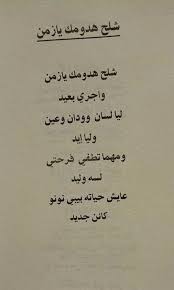 شلح هدومك يازمن
شلح هدومك يازمن
واجري بعيد
ليا لسان وودان وعين
وليا إيد
ومهما تطفي فرحتي
لسه وليد
عايش حياته بيبي نونو
كائن جديد